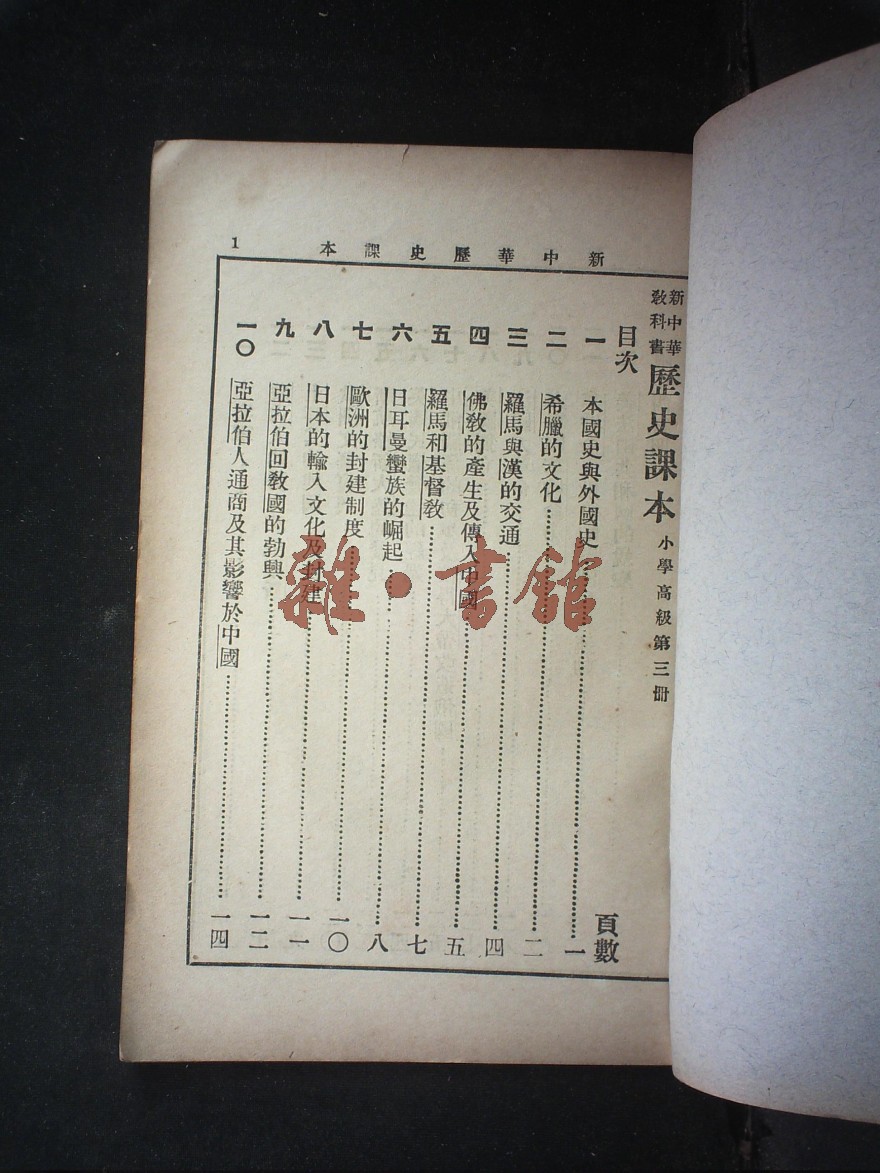 新中華歷史課本
1
新中華
教科書
歷史課本
小學高級第三冊
目次
頁數
一 本國史與外國史 一
二 希臘的文化 二
三 羅馬與漢的交通 四
四 佛教的產生及傳入中國 五
五 羅馬和基督教 七
六 日耳曼蠻族的崛起 八
七 歐洲的封建制度 一〇
八 日本的輸入文化及封建 一一
九 亞拉伯回教國的勃興 一二
一〇 亞拉伯人通商及其影響於中國 一四
雜·書館